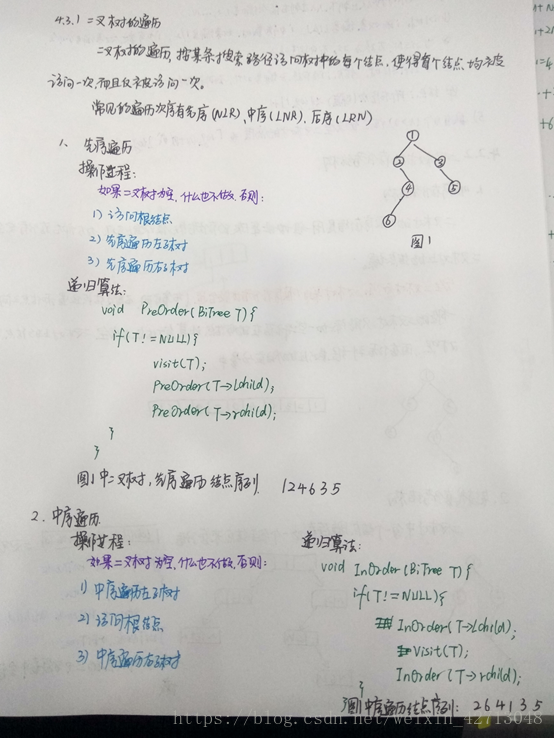 4.3.1 二叉树的遍历
二叉树的遍历,按某条搜索路径访问树中的每个结点,使得每个结点均被
访问一次,而且仅被访问一次。
常见的遍历次序有先序(NLR)、中序(LNR)、后序(LRN)
1、先序遍历
操作过程:
如果二叉树为空,什么也不做,否则:
1) 访问根结点
2) 先序遍历左子树
3) 先序遍历右子树
1
2
3
4
5
6
图1
递归算法:
void PreOrder(BiTree T){
if(T!=NULL){
visit(T);
PreOrder(T->lchild);
PreOrder(T->rchild);
}
}
图1中二叉树,先序遍历结点序列 124635
2、中序遍历
操作过程:
如果二叉树为空,什么也不做,否则:
1) 中序遍历左子树
2) 访问根结点
3) 中序遍历右子树
递归算法:
void InOrder(BiTree T){
if(T!=NULL){
InOrder(T->lchild);
visit(T);
InOrder(T->rchild);
}
图1中序遍历结点序列: 264135
https://blog.csdn.net/weixin_42713048